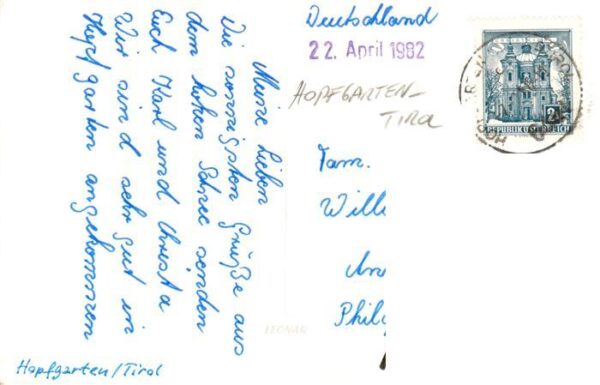 Meine Lieben
Die sonnigsten Grüße aus
dem hohen Schnee senden
Euch Karl und Christa
Wir sind sehr gut in
Hopfgarten angekommen
Hopfgarten/Tirol
Deutschland
22. April 1982
HOPFGARTEN-
TIROL
2 S
REPUBLIK ÖSTERREICH
Fam.
Will
An
Phil
LEONAR